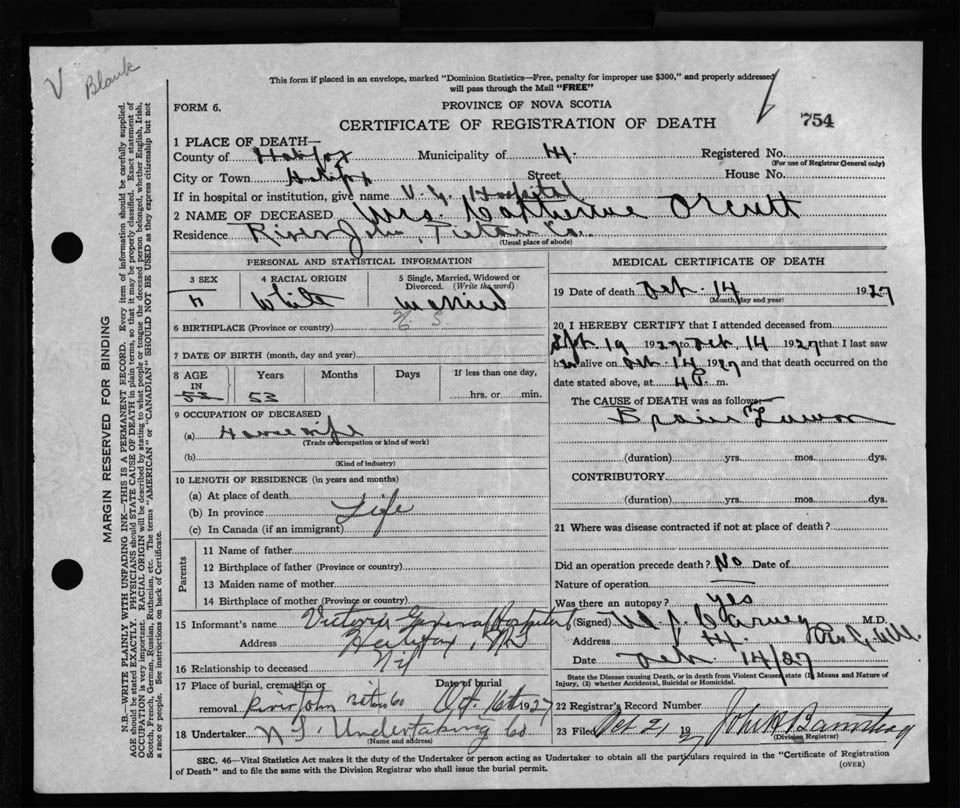 V Blank
This form if placed in an envelope, marked "Dominion Statistics—Free, penalty for improper use $300," and properly addressed
will pass through the Mail "FREE"
FORM 6.
PROVINCE OF NOVA SCOTIA
CERTIFICATE OF REGISTRATION OF DEATH
754
MARGIN RESERVED FOR BINDING
N.B.—WRITE PLAINLY WITH UNFADING INK—THIS IS A PERMANENT RECORD. Every item of information should be carefully supplied.
AGE should be stated EXACTLY. PHYSICIANS should STATE CAUSE OF DEATH in plain terms, so that it may be properly classified. Exact statement of
OCCUPATION is very important. RACIAL ORIGIN will be described by stating to what people or tongue the deceased person belonged, whether English, Irish,
Scotch, French, German, Russian, Ruthenian, etc. The terms "AMERICAN" or "CANADIAN" SHOULD NOT BE USED as they express citizenship but not
a race or people. See instructions on back of Certificate.
1 PLACE OF DEATH—
County of Halifax Municipality of Hx. Registered No.
(For use of Registrar General only)
City or Town Halifax Street House No.
If in hospital or institution, give name V. G. Hospital
2 NAME OF DECEASED Mrs. Catherine Orcutt
Residence River John, Pictou Co.
(Usual place of abode)
PERSONAL AND STATISTICAL INFORMATION
3 SEX 4 RACIAL ORIGIN 5 Single, Married, Widowed or Divorced. (Write the word)
F White Married
6 BIRTHPLACE (Province or country) N. S.
7 DATE OF BIRTH (month, day and year)
8 AGE IN Years Months Days If less than one day,
53 53 hrs. or min.
9 OCCUPATION OF DECEASED
(a) Housewife
(Trade or occupation or kind of work)
(b)
(Kind of industry)
10 LENGTH OF RESIDENCE (in years and months)
(a) At place of death
(b) In province Life
(c) In Canada (if an immigrant)
Parents
11 Name of father
12 Birthplace of father (Province or country)
13 Maiden name of mother
14 Birthplace of mother (Province or country)
15 Informant's name Victoria General Hospital
Address Halifax, NS
16 Relationship to deceased
17 Place of burial, cremation or removal River John Pictou Co Date of burial Oct. 16th 1927
18 Undertaker N S. Undertaking Co
(Name and address)
MEDICAL CERTIFICATE OF DEATH
19 Date of death Oct. 14 1927
(Month, day and year)
20 I HEREBY CERTIFY that I attended deceased from
Sept 19 1927 to Oct. 14 1927 that I last saw
her alive on Oct. 14 1927 and that death occurred on the
date stated above, at 4 P. m.
The CAUSE of DEATH was as follows:
Brain Tumor
(duration) yrs. mos. dys.
CONTRIBUTORY
(duration) yrs. mos. dys.
21 Where was disease contracted if not at place of death?
Did an operation precede death? No Date of
Nature of operation
Was there an autopsy? yes
(Signed) M.D.
Address Hx.
Date Oct. 14/27
State the Disease causing Death, or in death from Violent Causes state (1) Means and Nature of
Injury, (2) whether Accidental, Suicidal or Homicidal.
22 Registrar's Record Number
23 Filed Oct 21 1927 John
(Division Registrar)
SEC. 46—Vital Statistics Act makes it the duty of the Undertaker or person acting as Undertaker to obtain all the particulars required in the "Certificate of Registration
of Death" and to file the same with the Division Registrar who shall issue the burial permit. (OVER)